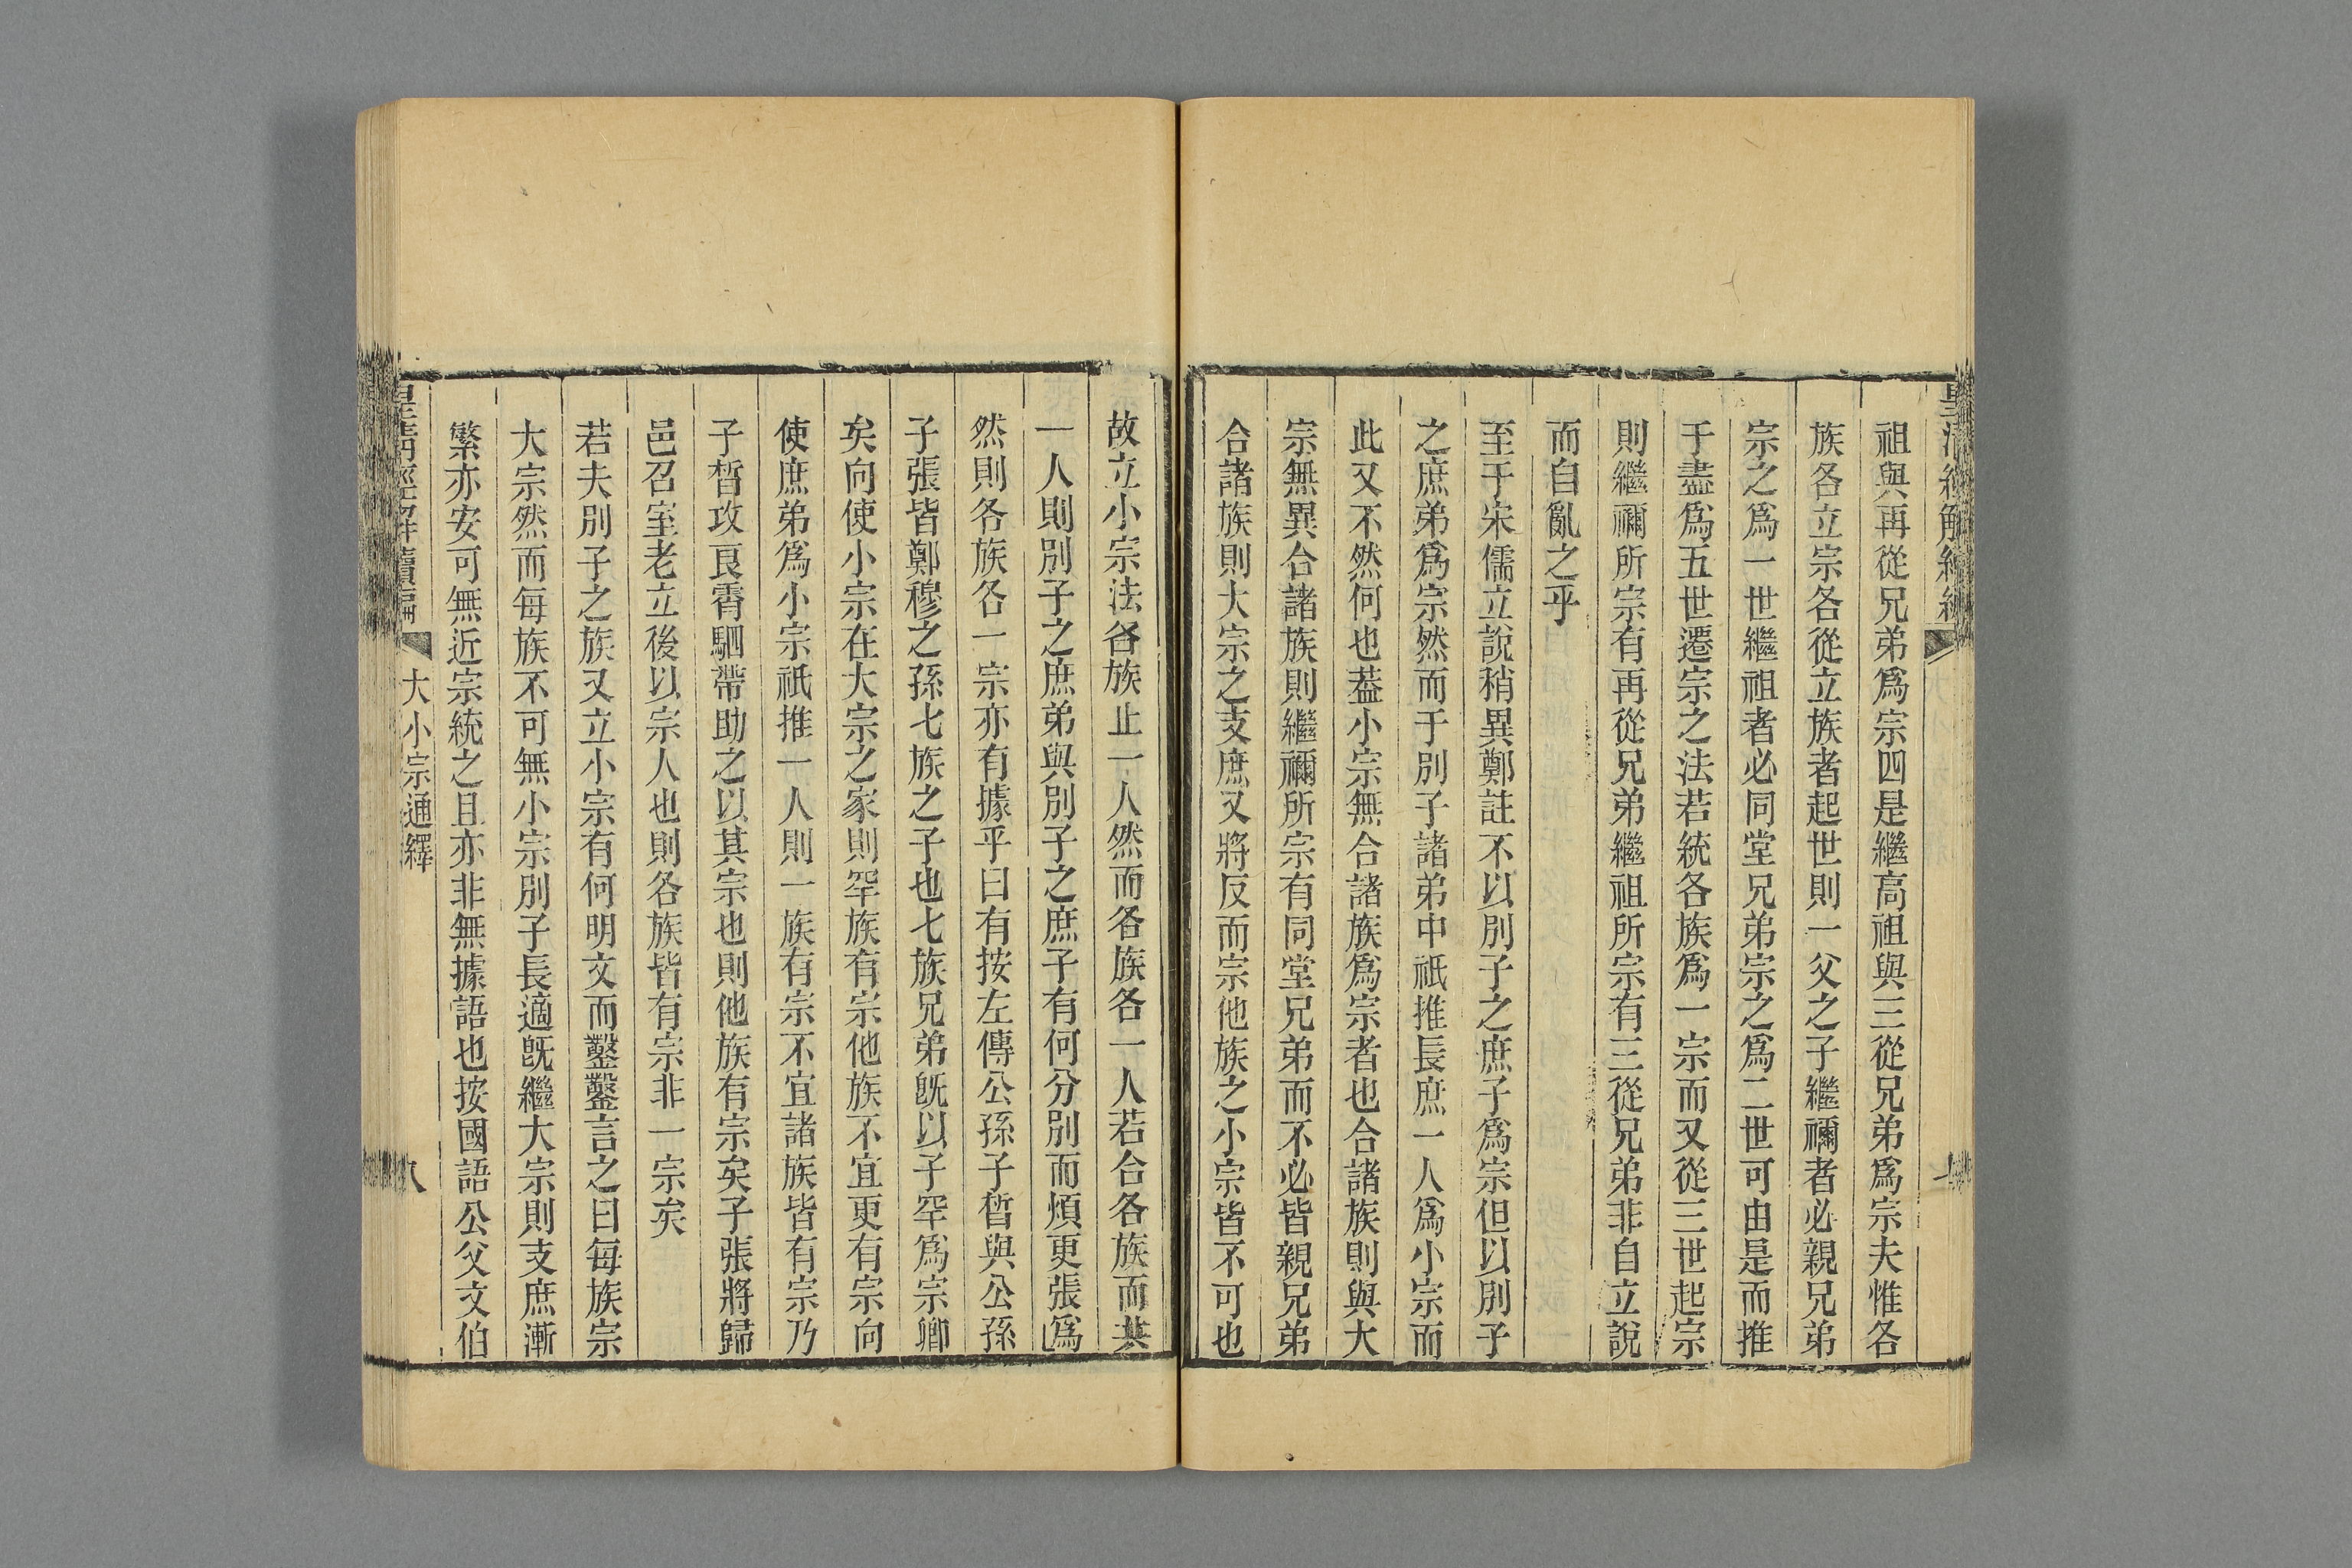 祖與再從兄弟爲宗四是繼高祖與三從兄弟爲宗夫惟各
族各立宗各從立族者起世則一父之子繼禰者必親兄弟
宗之爲一世繼祖者必同堂兄弟宗之爲二世可由是而推
于盡爲五世遷宗之法若統各族爲一宗而又從三世起宗
則繼禰所宗有再從兄弟繼祖所宗有三從兄弟非自立說
而自亂之乎
至于宋儒立說稍異鄭註不以別子之庶子爲宗但以別子
之庶弟爲宗然而于別子諸弟中祇推長庶一人爲小宗而
此又不然何也葢小宗無合諸族爲宗者也合諸族則與大
宗無異合諸族則繼禰所宗有同堂兄弟而不必皆親兄弟
合諸族則大宗之支庶又將反而宗他族之小宗皆不可也
故立小宗法各族止一人然而各族各一人若合各族而共
一人則別子之庶弟與別子之庶子有何分別而煩更張爲
然則各族各一宗亦有據乎曰有按左傳公孫子晳與公孫
子張皆鄭穆之孫七族之子也七族兄弟旣以子罕爲宗卿
矣向使小宗在大宗之家則罕族有宗他族不宜更有宗向
使庶弟爲小宗祇推一人則一族有宗不宜諸族皆有宗乃
子晳攻良霄駟帶助之以其宗也則他族有宗矣子張將歸
邑召室老立後以宗人也則各族皆有宗非一宗矣
若夫別子之族又立小宗有何明文而鑿鑿言之曰每族宗
大宗然而每族不可無小宗別子長適旣繼大宗則支庶漸
繁亦安可無近宗統之且亦非無據語也按國語公父文伯
皇清經解續編
大小宗通繹
八